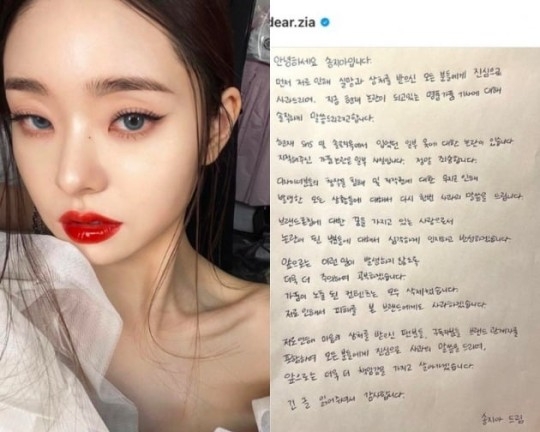 dear.zia
안녕하세요 송지아입니다.
먼저 저로 인해 실망과 상처를 받으신 모든 분들에게 진심으로
사과드리며, 지금 현재 논란이 되고있는 명품가품 기사에 대해
말씀드리려고합니다.
현재 SNS 및 솔로지옥에서 입었던 일부 옷에 대한 논란이 있습니다.
지적해주신 가품논란은 일부 사실입니다. 정말 죄송합니다.
디자이너분들의 창작물 침해 및 저작권에 대한 무지로 인해
발생한 모든 상황들에 대해서 다시 한번 사과의 말씀을 드립니다.
브랜드론칭에 대한 꿈을 가지고 있는 사람으로서
논란이 된 부분들에 대해서 심각하게 인지하고 반성하겠습니다.
앞으로는 이런 일이 발생하지 않도록
더욱 더 주의하며 공부하겠습니다.
가품이 노출 된 컨텐츠는 모두 삭제했습니다.
저로 인해서 피해를 본 브랜드에게도 사과하겠습니다.
저로인하여 마음의 상처를 받으신 팬분들, 구독자분들 브랜드 관계자를
포함하여 모든 분들에게 진심으로 사과의 말씀을 드리며,
앞으로는 더욱 더 책임감을 가지고 살아가겠습니다.
긴 글 읽어주셔서 감사합니다.
송지아 드림